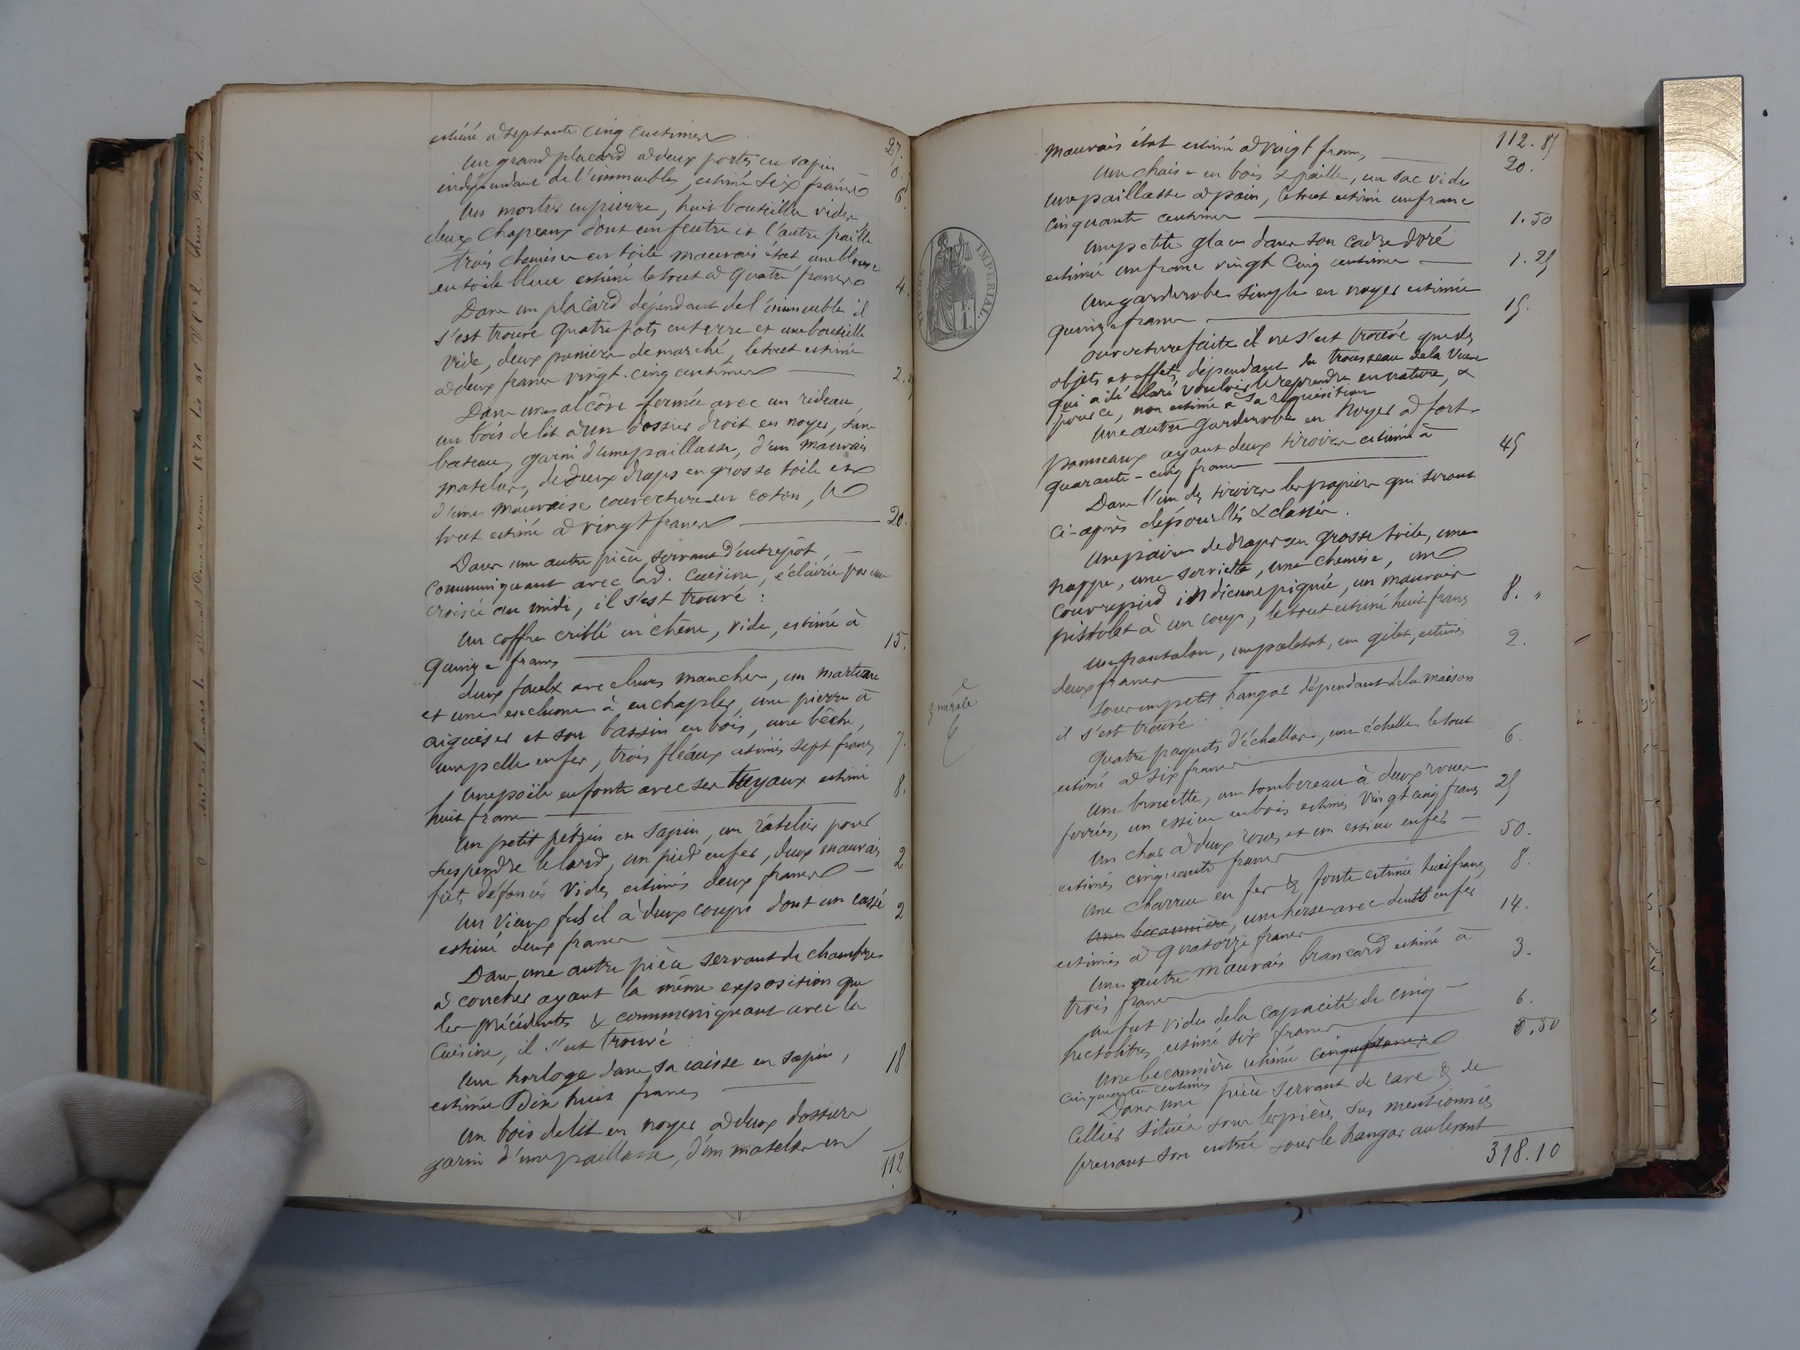 estimé à septante cinq centimes
27.
0.
Un grand placard à deux portes en sapin
indépendant de l'immeuble, estimé six francs
6.
Un mortier en pierre, huit bouteilles vides
deux chapeaux dont un feutre et l'autre paille
trois chemises en toile mauvais état une blouse
en toile bleue estimé le tout à quatre francs
4.
Dans un placard dépendant de l'immeuble il
s'est trouvé quatre pots en terre et une bouteille
vide, deux paniers de marché, le tout estimé
à deux francs vingt-cinq centimes
2.
Dans une alcôve fermée avec un rideau
un bois de lit à un dossier droit en noyer, 
bateau, garni d'une paillasse, d'un mauvais
matelas, de deux draps en grosse toile et
d'une mauvaise couverture en coton, le
tout estimé à vingt francs
20.
Dans une autre pièce servant d'entrepôt,
communiquant avec lad. cuisine, éclairée par une
croisée au midi, il s'est trouvé :
Un coffre criblé en chêne, vide, estimé à
quinze francs
15.
deux faulx avec leurs manches, un marteau
et une enclume à enchapler, une pierre à
aiguiser et son bassin en bois, une bêche,
une pelle en fer, trois fléaux estimés sept francs
7.
Un poële en fonte avec ses tuyaux estimé
huit francs
8.
Un petit pétrin en sapin, un râtelier pour
suspendre le lard, un pied en fer, deux mauvais
fûts défoncés vides estimés deux francs
2
Un vieux fusil à deux coups dont un cassé
estimé deux francs
2
Dans une autre pièce servant de chambre
à coucher ayant la même exposition que
les précédentes & communiquant avec la
cuisine, il s'est trouvé :
Une horloge dans sa caisse en sapin,
estimée Dix huit francs
18
Un bois de lit en noyer à deux dossiers
garni d'une paillasse, d'un matelas en
112
TIMBRE IMPÉRIAL
mauvais état estimé à vingt francs
112.85
20.
Une chaise en bois & paille, un sac vide
une paillasse à pain, le tout estimé un franc
cinquante centimes
1.50
Une petite glace dans son cadre doré
estimée un franc vingt cinq centimes
1.25
Une garderobe simple en noyer estimée
quinze francs
15.
ouverture faite il ne s'est trouvé que des
objets et effets dépendant du trousseau de la Veuve
qui a déclaré vouloir le reprendre en nature, &
pour ce, non estimé à sa réquisition
Une autre garderobe en noyer à fort
panneaux ayant deux tiroirs estimée à
quarante-cinq francs
45
Dans l'un des tiroirs les papiers qui seront
ci-après dépouillés & classés.
Une paire de draps en grosse toile, une
nappe, une serviette, une chemise, un
couvrepied indienne piquée, un mauvais
pistolet à un coup, le tout estimé huit francs
8. "
Un pantalon, un paletot, un gilet, estimés
deux francs
2.
Sous un petit hangar dépendant de la maison
il s'est trouvé :
Quatre paquets d'échallas, une échelle le tout
estimé à six francs
6.
Une brouette, un tombereau à deux roues
ferrées, un essieu en bois estimés vingt cinq francs
25
Un char à deux roues et un essieu en fer
estimés cinquante francs
50.
Une charrue en fer & fonte estimée huit francs
8.
Une becannière, une herse avec dents en fer
estimées à quatorze francs
14.
Un autre mauvais brancard estimé à
trois francs
3.
un fut vide de la capacité de cinq
hectolitres, estimé six francs
6.
Une becannière estimée cinq francs
cinquante centimes
0.50
Dans une pièce servant de cave & de
Cellier située sous les pièces sus mentionnées
prenant son entrée sous le hangar au levant
318.10